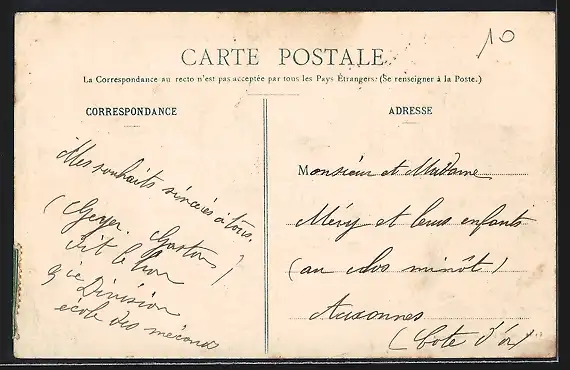 10
CARTE POSTALE
La Correspondance au recto n'est pas acceptée par tous les Pays Étrangers. (Se renseigner à la Poste.)
CORRESPONDANCE
Mes souhaits sincères à tous.
(Geyer Gaston)
dit le lion
9 ie Division
école des mécano
ADRESSE
Monsieur et Madame
Méry et leurs enfants
(au clos minôt)
Auxonnes
(Cote d'or)